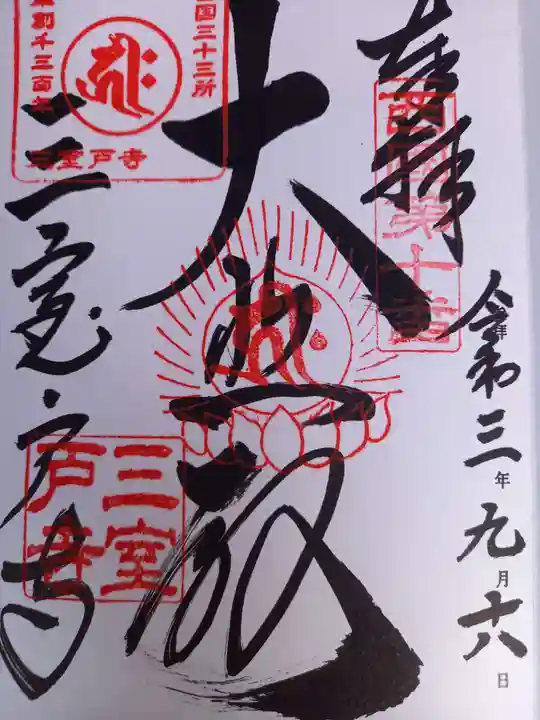 奉拝
西国第十番
令和三年九月十六日
大悲殿
三室戸寺
国三十三所
草創千三百年
三室戸寺
三室
戸寺